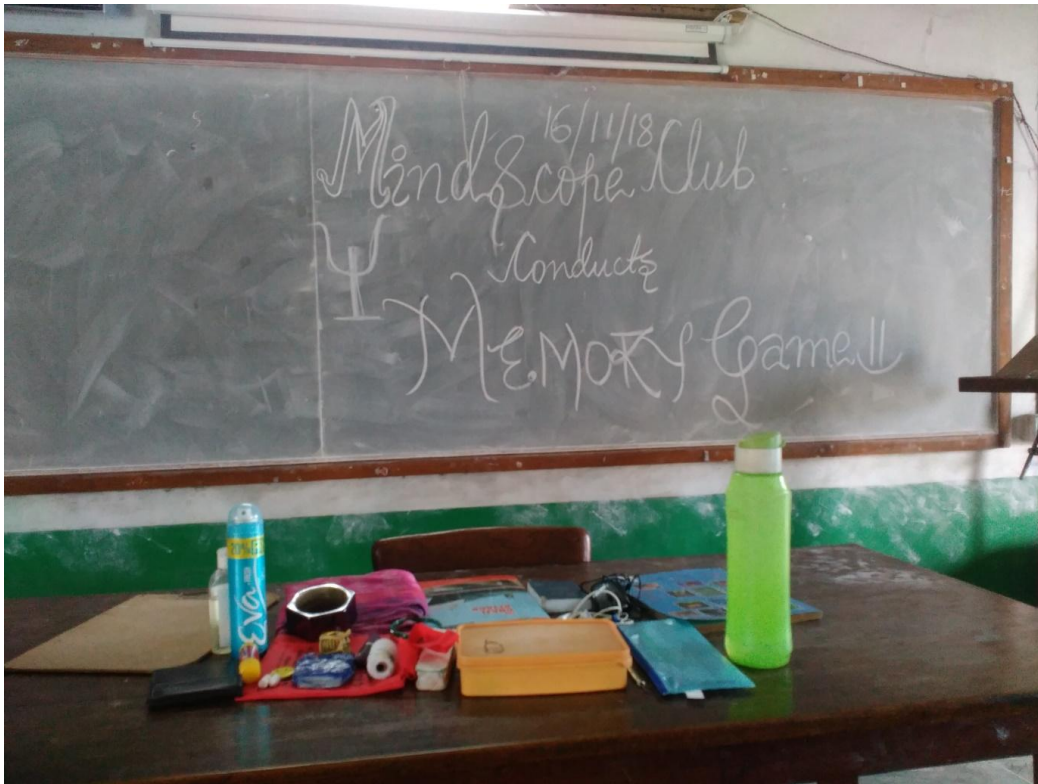 16/11/18
MindScope Club
Ψ
Conducts
MEMORY Game !!
Eva